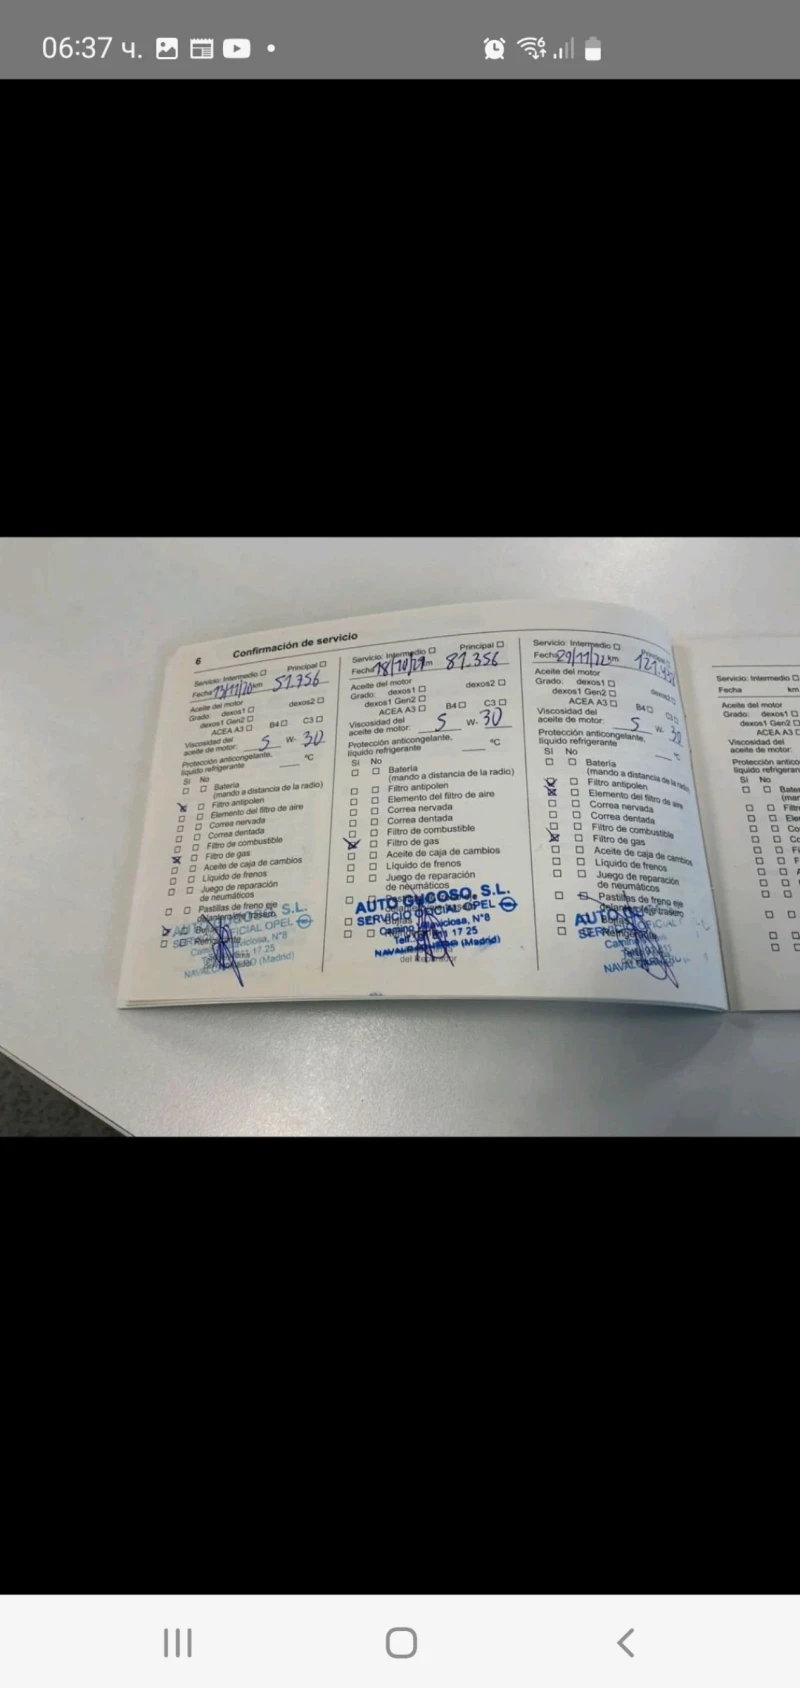 06:37 ч.
6 Confirmación de servicio
Servicio: Intermedio ☐ Principal ☐
Fecha 13/11/20 km 51.756
Aceite del motor
Grado: dexos1 ☐ dexos2 ☐
dexos1 Gen2 ☐
ACEA A3 ☐ B4 ☐ C3 ☐
Viscosidad del
aceite de motor: 5 W- 30
Protección anticongelante,
líquido refrigerante ____ °C
Sí No
☐ ☐ Batería
(mando a distancia de la radio)
☒ ☐ Filtro antipolen
☐ ☐ Elemento del filtro de aire
☐ ☐ Correa nervada
☐ ☐ Correa dentada
☐ ☐ Filtro de combustible
☒ ☐ Filtro de gas
☐ ☐ Aceite de caja de cambios
☐ ☐ Líquido de frenos
☐ ☐ Juego de reparación
de neumáticos
☐ ☐ Pastillas de freno eje
S.L.
OFICIAL OPEL
Nº8
17 25
(Madrid)
Servicio: Intermedio ☐ Principal ☐
Fecha 18/10/21 km 81.356
Aceite del motor
Grado: dexos1 ☐ dexos2 ☐
dexos1 Gen2 ☐
ACEA A3 ☐ B4 ☐ C3 ☐
Viscosidad del
aceite de motor: 5 W- 30
Protección anticongelante,
líquido refrigerante ____ °C
Sí No
☐ ☐ Batería
(mando a distancia de la radio)
☐ ☐ Filtro antipolen
☐ ☐ Elemento del filtro de aire
☐ ☐ Correa nervada
☐ ☐ Correa dentada
☐ ☐ Filtro de combustible
☒ ☐ Filtro de gas
☐ ☐ Aceite de caja de cambios
☐ ☐ Líquido de frenos
☐ ☐ Juego de reparación
de neumáticos
AUTO GUCOSO, S.L.
SERVICIO OFICIAL OPEL
Camino Nº8
17 25
(Madrid)
Servicio: Intermedio ☐ Principal
Fecha 29/11/22 km
Aceite del motor
Grado: dexos1 ☐ dexos2 ☐
dexos1 Gen2 ☐
ACEA A3 ☐ B4 ☐ C3 ☐
Viscosidad del
aceite de motor: 5 W- 30
Protección anticongelante,
líquido refrigerante ____ °C
Sí No
☐ ☐ Batería
(mando a distancia de la radio)
☒ ☐ Filtro antipolen
☒ ☐ Elemento del filtro de aire
☐ ☐ Correa nervada
☐ ☐ Correa dentada
☐ ☐ Filtro de combustible
☒ ☐ Filtro de gas
☐ ☐ Aceite de caja de cambios
☐ ☐ Líquido de frenos
☐ ☐ Juego de reparación
de neumáticos
☐ Pastillas de freno eje
AUTO
Servicio: Intermedio ☐
Fecha km
Aceite del motor
Grado: dexos1 ☐
dexos1 Gen2 ☐
ACEA A3
Viscosidad del
aceite de motor:
Sí No